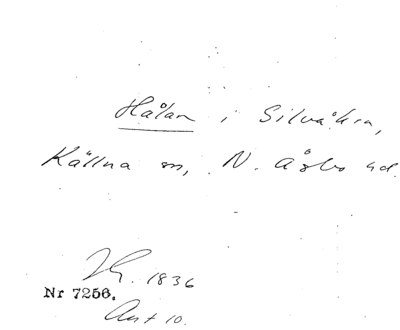 Hålan i Silvåkra,
Källna sn, N. Åsbo hd.
Jh. 1836
Nr 7256.
Ant 10.